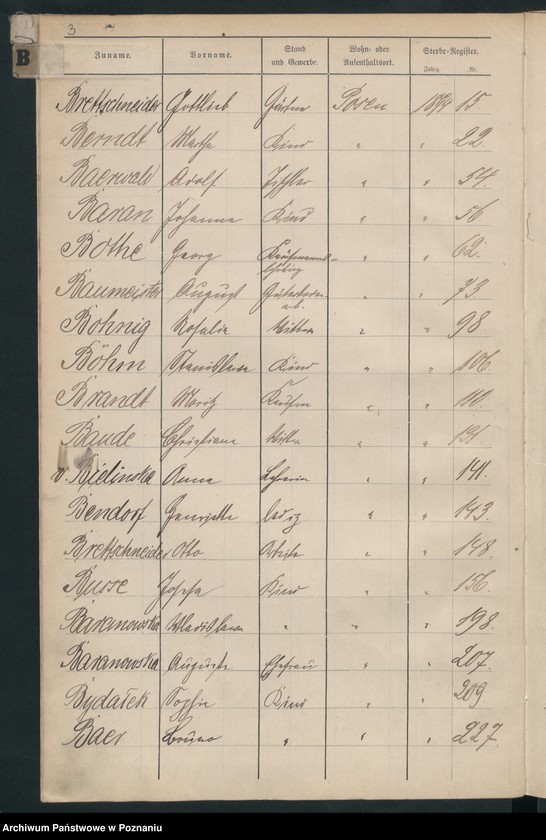 3
B
Zuname. Vorname. Stand und Gewerbe. Wohn- oder Aufenthaltsort. Sterbe-Register.
Jahrg. Nr.
Brettschneider Gottlieb Gärtner Posen 1894 15
Berndt Martha Kind " " 22.
Baerwald Adolf Tischler " " 54.
Baran Johanna Kind " " 56.
Bothe Georg Kaufmanns- " " 62.
lehrling
Baumeister August " " 73
Bohnig Rosalie Wittwe " " 98
Böhm Stanislaus Kind " " 106.
Brandt Moritz Kaufm " " 110.
Baude Christiane Wittwe " " 131.
v. Bielinska Anna Lehrerin " " 141.
Bendorf Henriette ledig " " 143.
Brettschneider Otto Arbeiter " " 148.
Busse Josefa Kind " " 156.
Baranowska Wladislawa " " " 198.
Baranowska Auguste Ehefrau " " 207.
Bydałek Sophie Kind " " 209
Baer Bruno " " " 227.
Archiwum Państwowe w Poznaniu